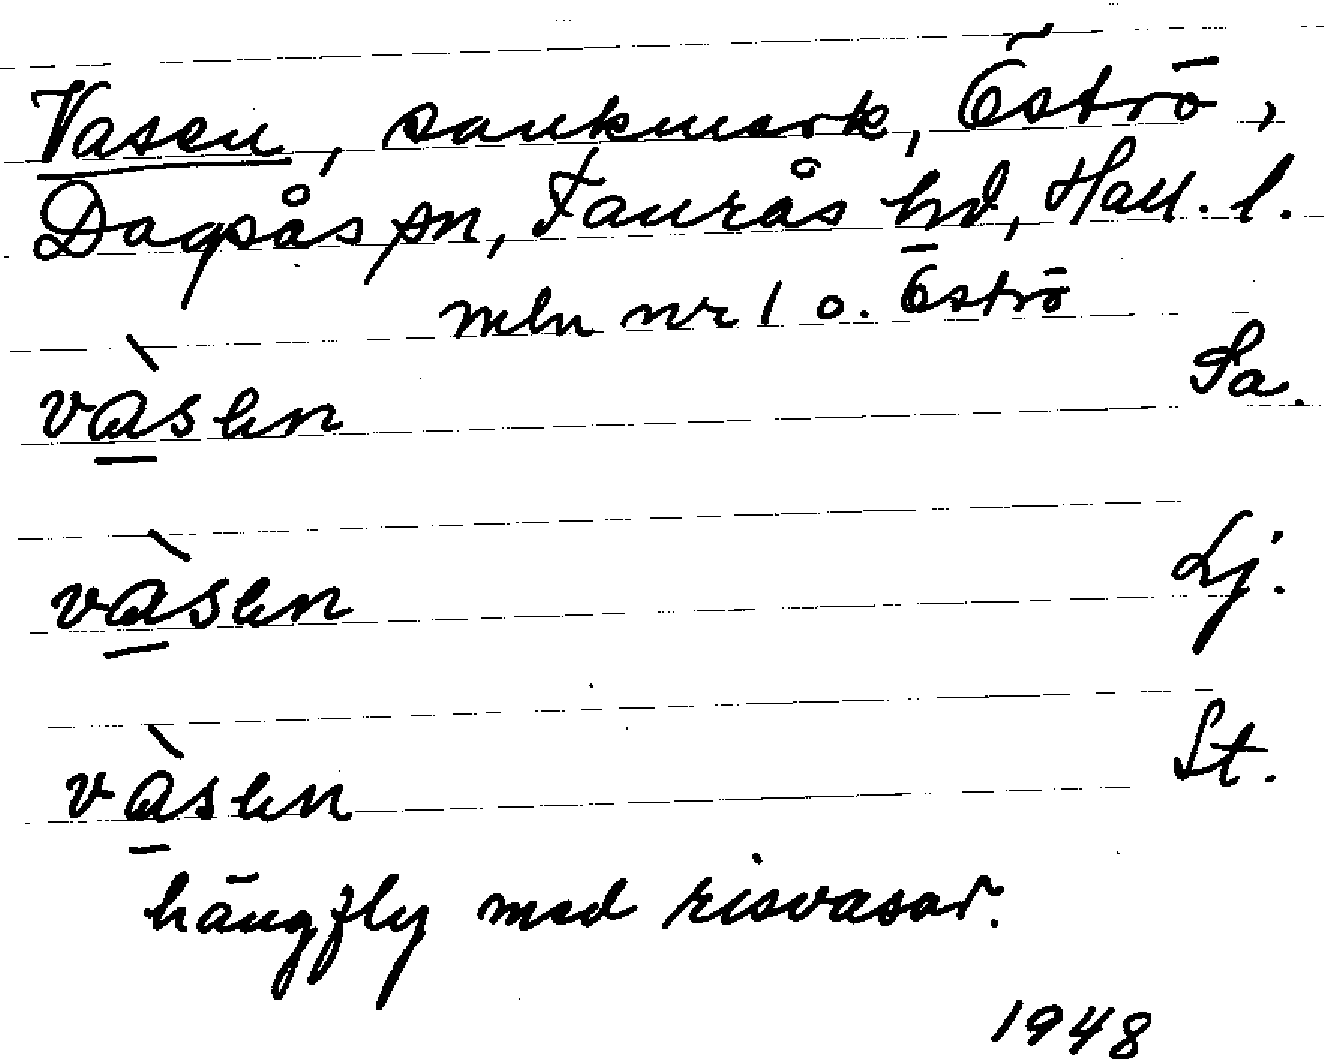 Vasen, sankmark, Öströ,
Dagsås sn, Faurås hd, Hall. l.
mln nr 1 o. Öströ
và̱sen Sa.
và̱sen Lj.
và̱sen St.
hängfly med risvasar.
1948